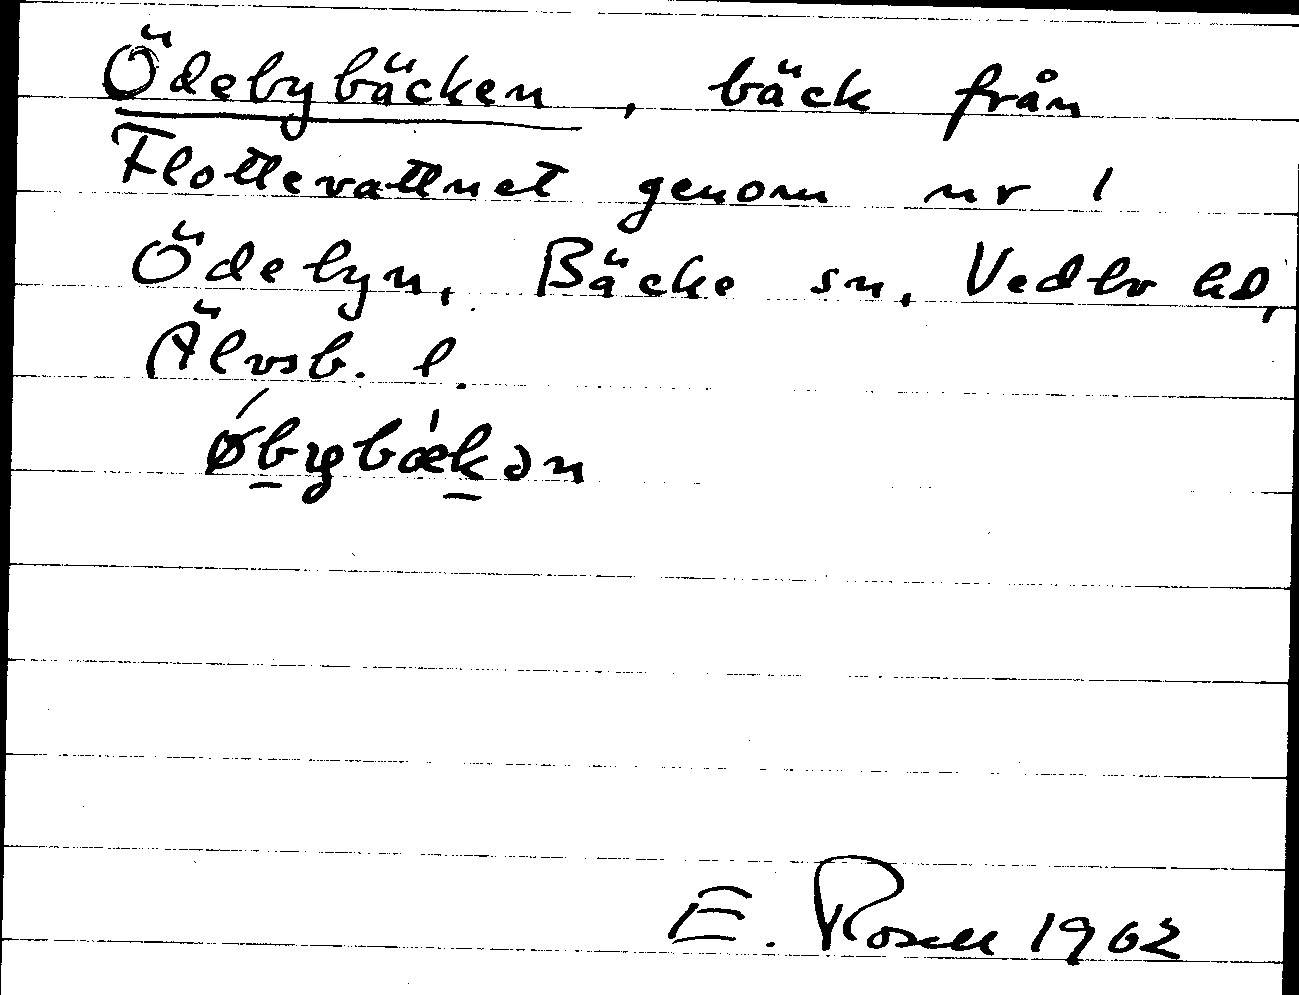 Ödebybäcken, bäck från
Flottevattnet genom nr 1
Ödebyn, Bäcke sn, Vedbo hd,
Älvsb. l.
øbybækən
E. Rosell 1962